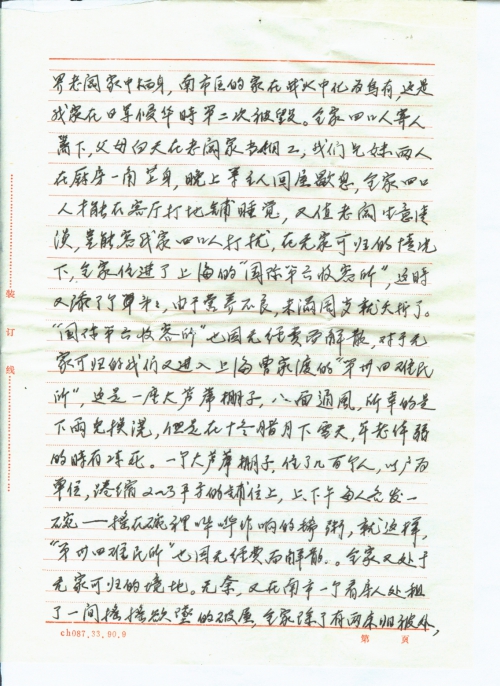 界老闆家中栖身，南市区的家在战火中化为乌有，这是
我家在日军侵华時第二次被毁。全家四口人寄人
篱下，父母白天在老闆家当佣工，我们兄妹两人
在厨房一角蹲身，晚上等主人回屋歇息，全家四口
人才能在客厅打地铺睡觉，又值老闆生意清
淡，岂能容我家四口人打扰，在无家可归的情况
下，全家住进了上海的"国际平台收容所"，这時
又添了个弟弟，由于营养不良，未满周岁就夭折了。
"国际平台收容所"也因无经费而解散，对于无
家可归的我们又进入上海曹家渡的"第卅四难民
所"，这是一座大芦蓆棚子，八面通風，所幸的是
下雨免挨淋，但是在十冬腊月下雪天，年老体弱
的時有冻死。一个大芦蓆棚子，住了几百个人，以户为
单位，踡缩2～3平方的铺位上，上、下午每人各发一
碗——搖在碗裡哗哗作响的稀粥，就这样，
"第卅四难民所"也因无经费而解散.。全家又处于
无家可归的境地。无奈，又在南市一个看床人处租
了一间搖搖欲墜的破屋，全家除了有两条旧被外，
装
订
线
ch087.33.90.9
第 页